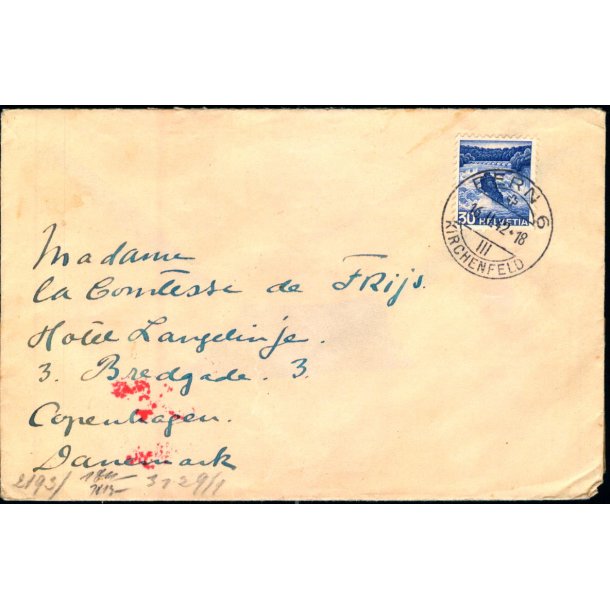 30 HELVETIA
BERN 6
KIRCHENFELD
III
Madame
la Comtesse de FRijs.
Hotel Langelinje.
3. Bredgade. 3
Copenhagen.
Danemark
2193/ 3129/1